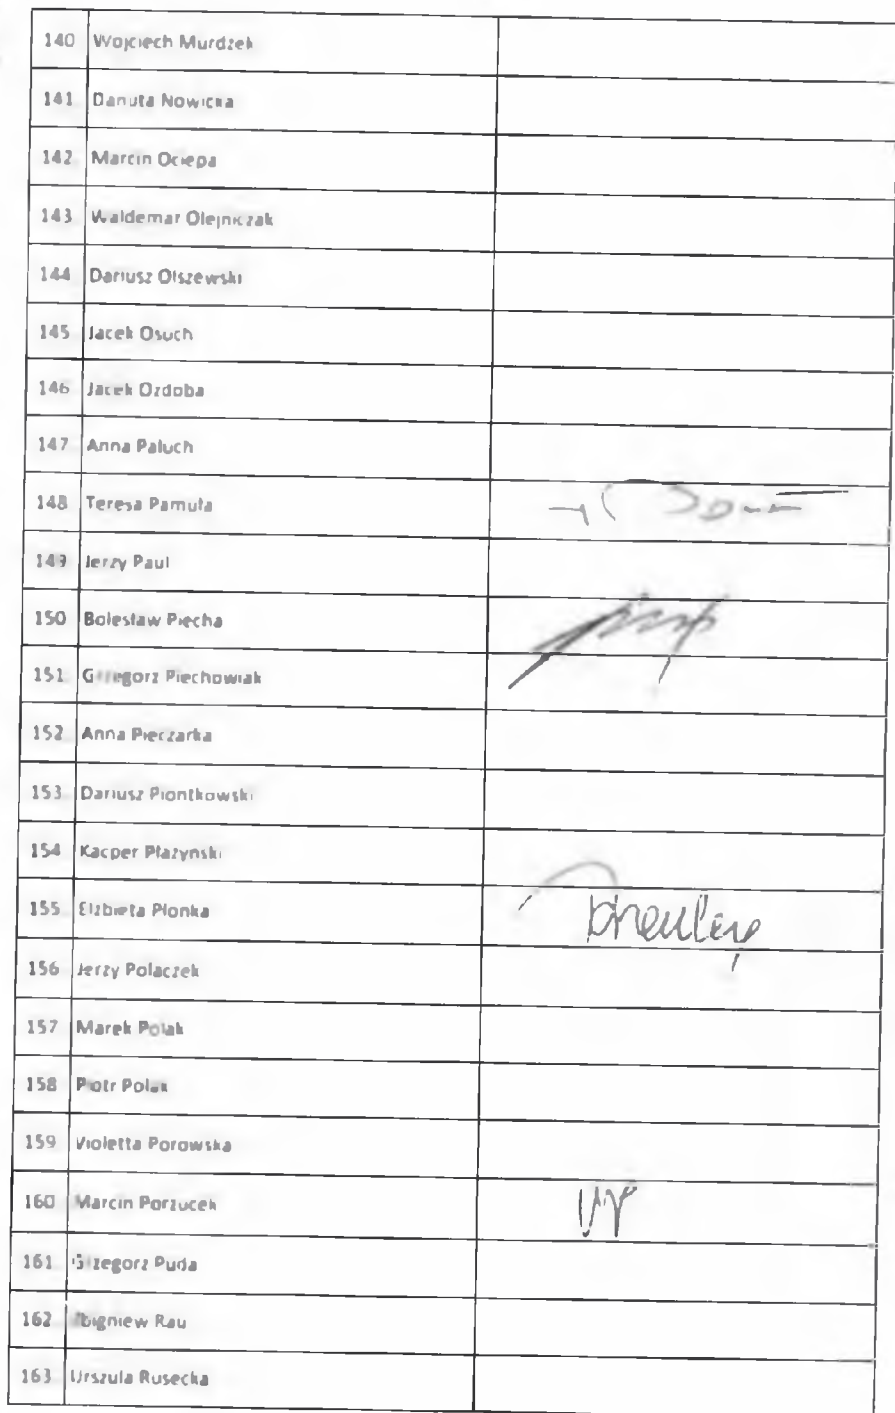 140 Wojciech Murdzek
141 Danuta Nowicka
142 Marcin Ociepa
143 Waldemar Olejniczak
144 Dariusz Olszewski
145 Jacek Osuch
146 Jacek Ozdoba
147 Anna Paluch
148 Teresa Pamuła
149 Jerzy Paul
150 Bolesław Piecha
151 Grzegorz Piechowiak
152 Anna Pieczarka
153 Dariusz Piontkowski
154 Kacper Płażyński
155 Elżbieta Płonka
156 Jerzy Polaczek
157 Marek Polak
158 Piotr Polak
159 Violetta Porowska
160 Marcin Porzucek
161 Grzegorz Puda
162 Zbigniew Rau
163 Urszula Rusecka